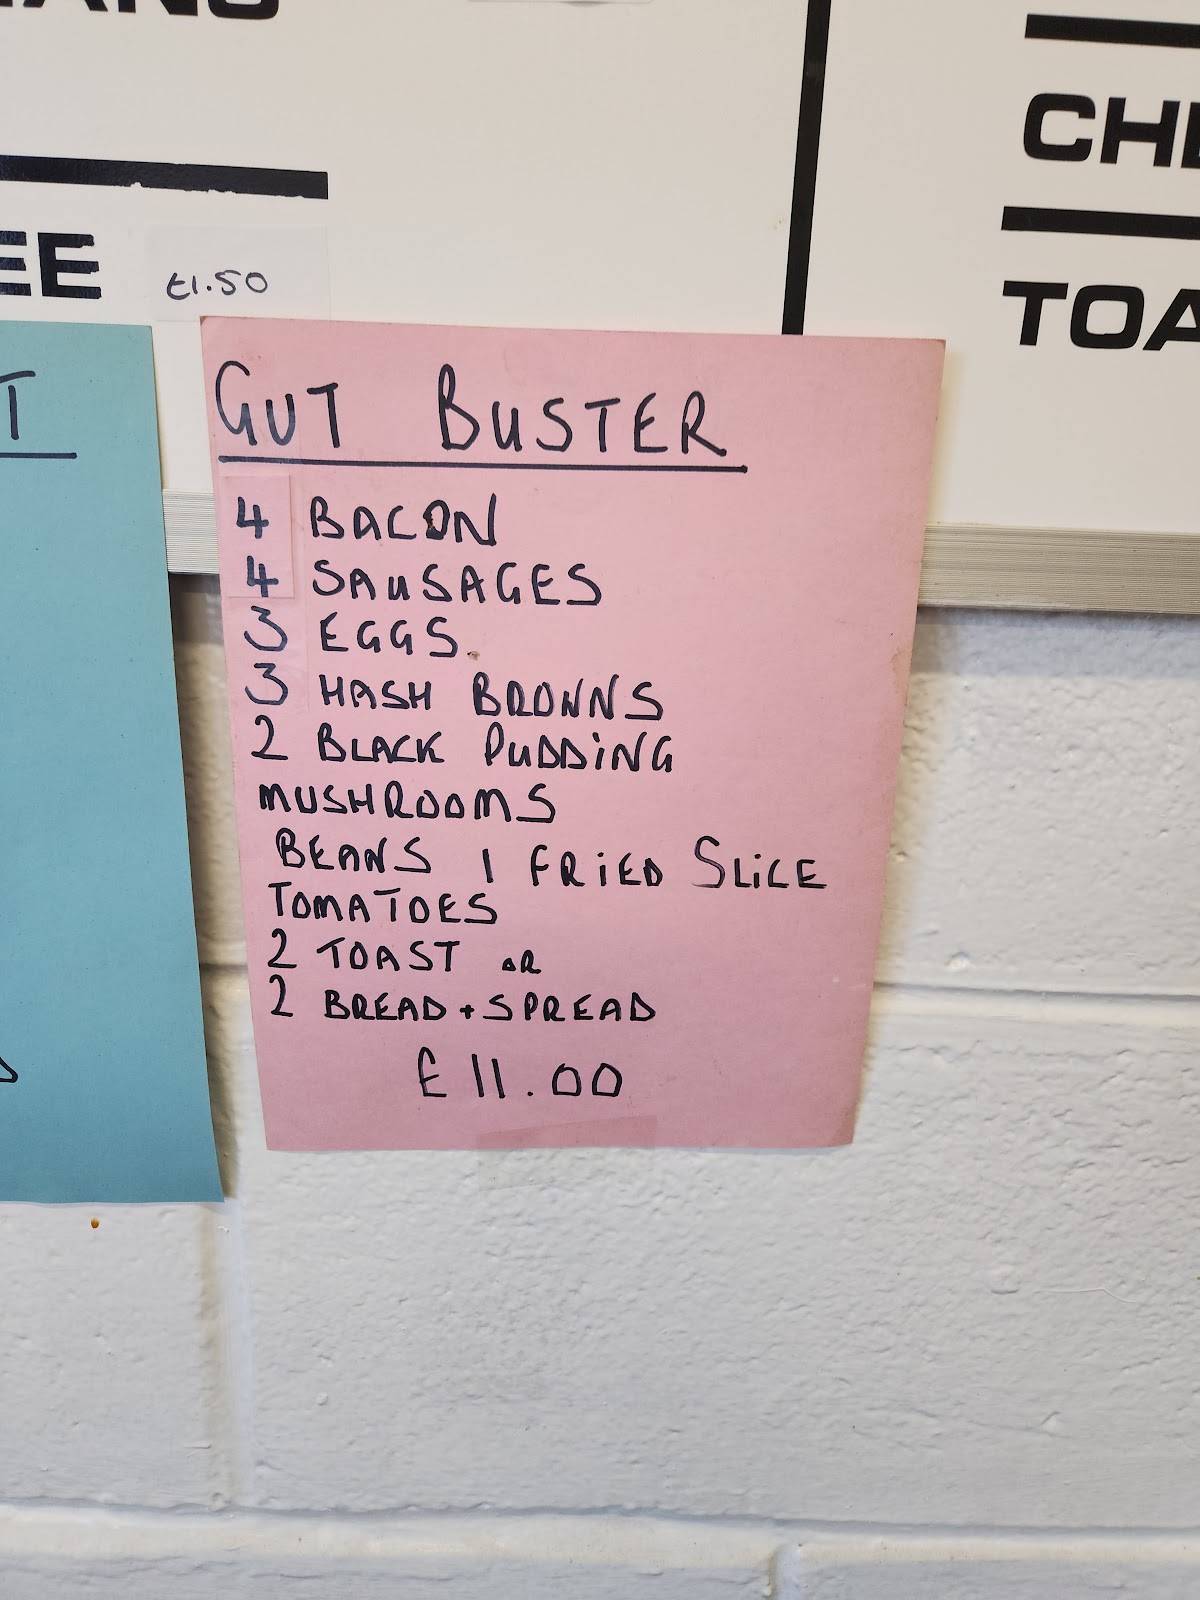 £1.50
GUT BUSTER
4 BACON
4 SAUSAGES
3 EGGS.
3 HASH BROWNS
2 BLACK PUDDING
MUSHROOMS
BEANS 1 FRiED SLiCE
TOMATOES
2 TOAST OR
2 BREAD + SPREAD
£11.00